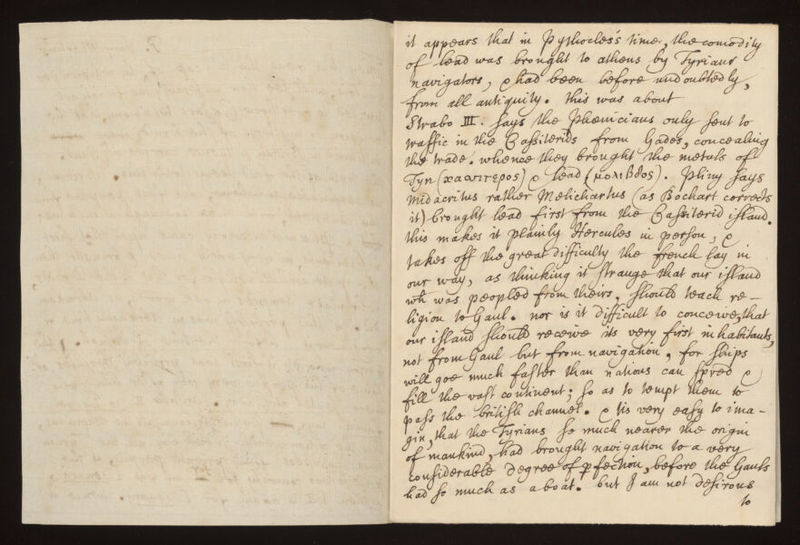 it appears that in Pythocles's time, the comodity
of lead was brought to athens by Tyrians
navigators, & had been before undoubtedly,
from all antiquity. this was about
Strabo III. says the Phœnicians only sent to
traffic in the Cassiterids from Gades, concealing
the trade. whence they brought the metals of
Tyn (κασσιτερος) & lead (μολιβδος). Pliny says
Midacritus rather Melichartus (as Bochart corrects
it) brought lead first from the Cassiterid island.
this makes it plainly Hercules in person, &
takes off the great difficulty the french lay in
our way, as thinking it strange that our island
wh was peopled from theirs, should teach re-
ligion to Gaul. nor is it difficult to conceive, that
our island should receive its very first inhabitants,
not from Gaul but from navigation, for ships
will goe much faster than nations can spred &
fill the vast continent; so as to tempt them to
pass the british channel. & tis very easy to ima-
gin, that the Tyrians so much nearer the origin
of mankind, had brought navigation to a very
considerable degree of pfection, before the Gauls
had so much as a boat. but I am not desirous
to